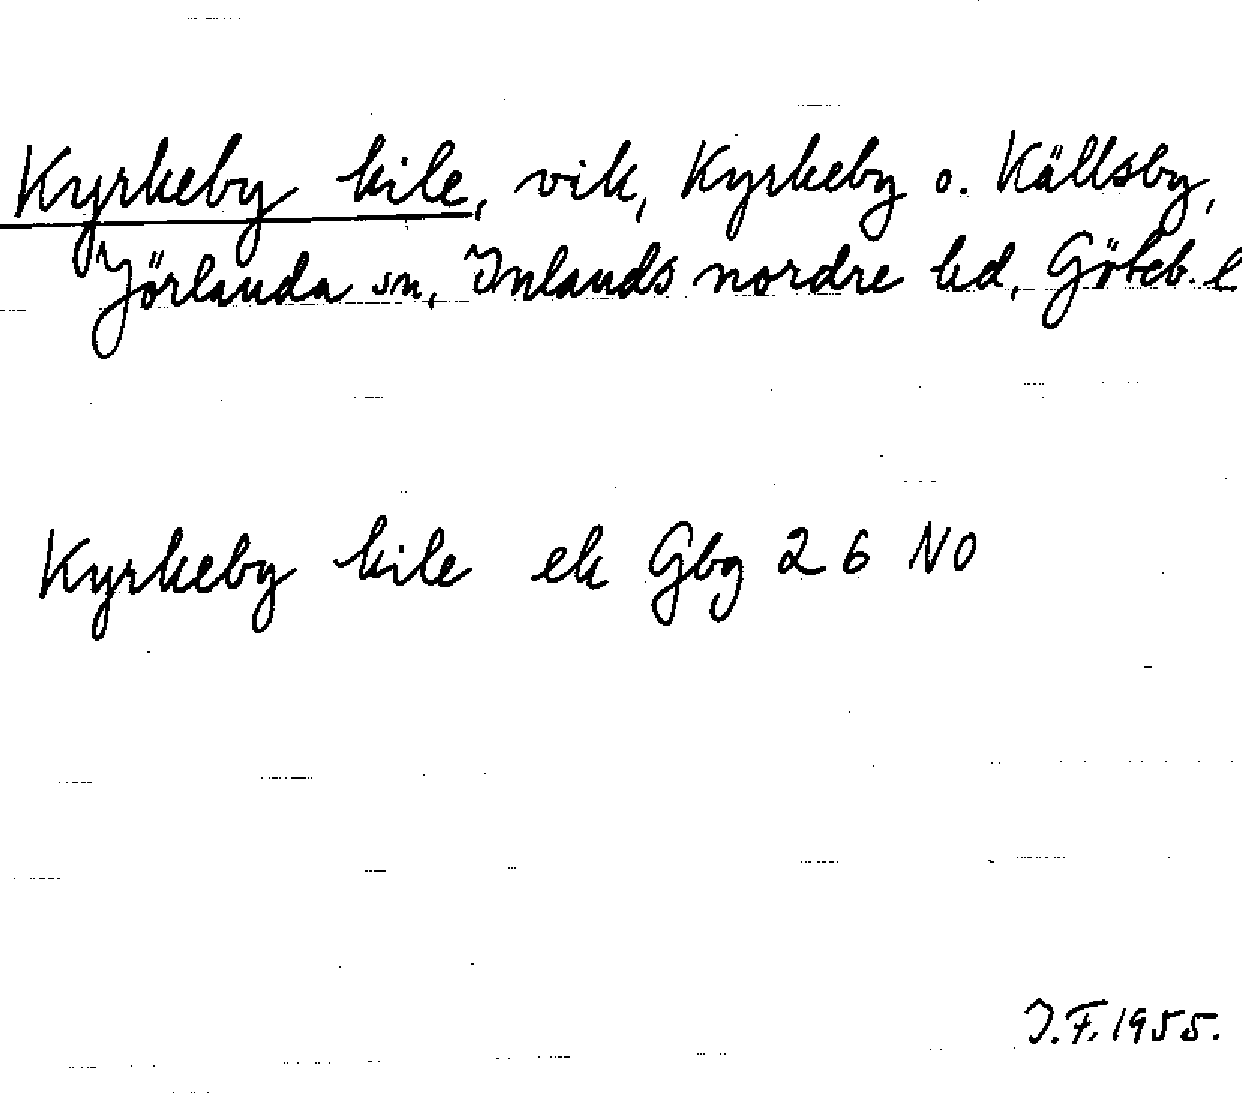 Kyrkeby kile, vik, Kyrkeby o. Källsby,
Jörlanda sn, Inlands nordre hd, Göteb. l
Kyrkeby kile ek Gbg 26 NO
I.F. 1955.